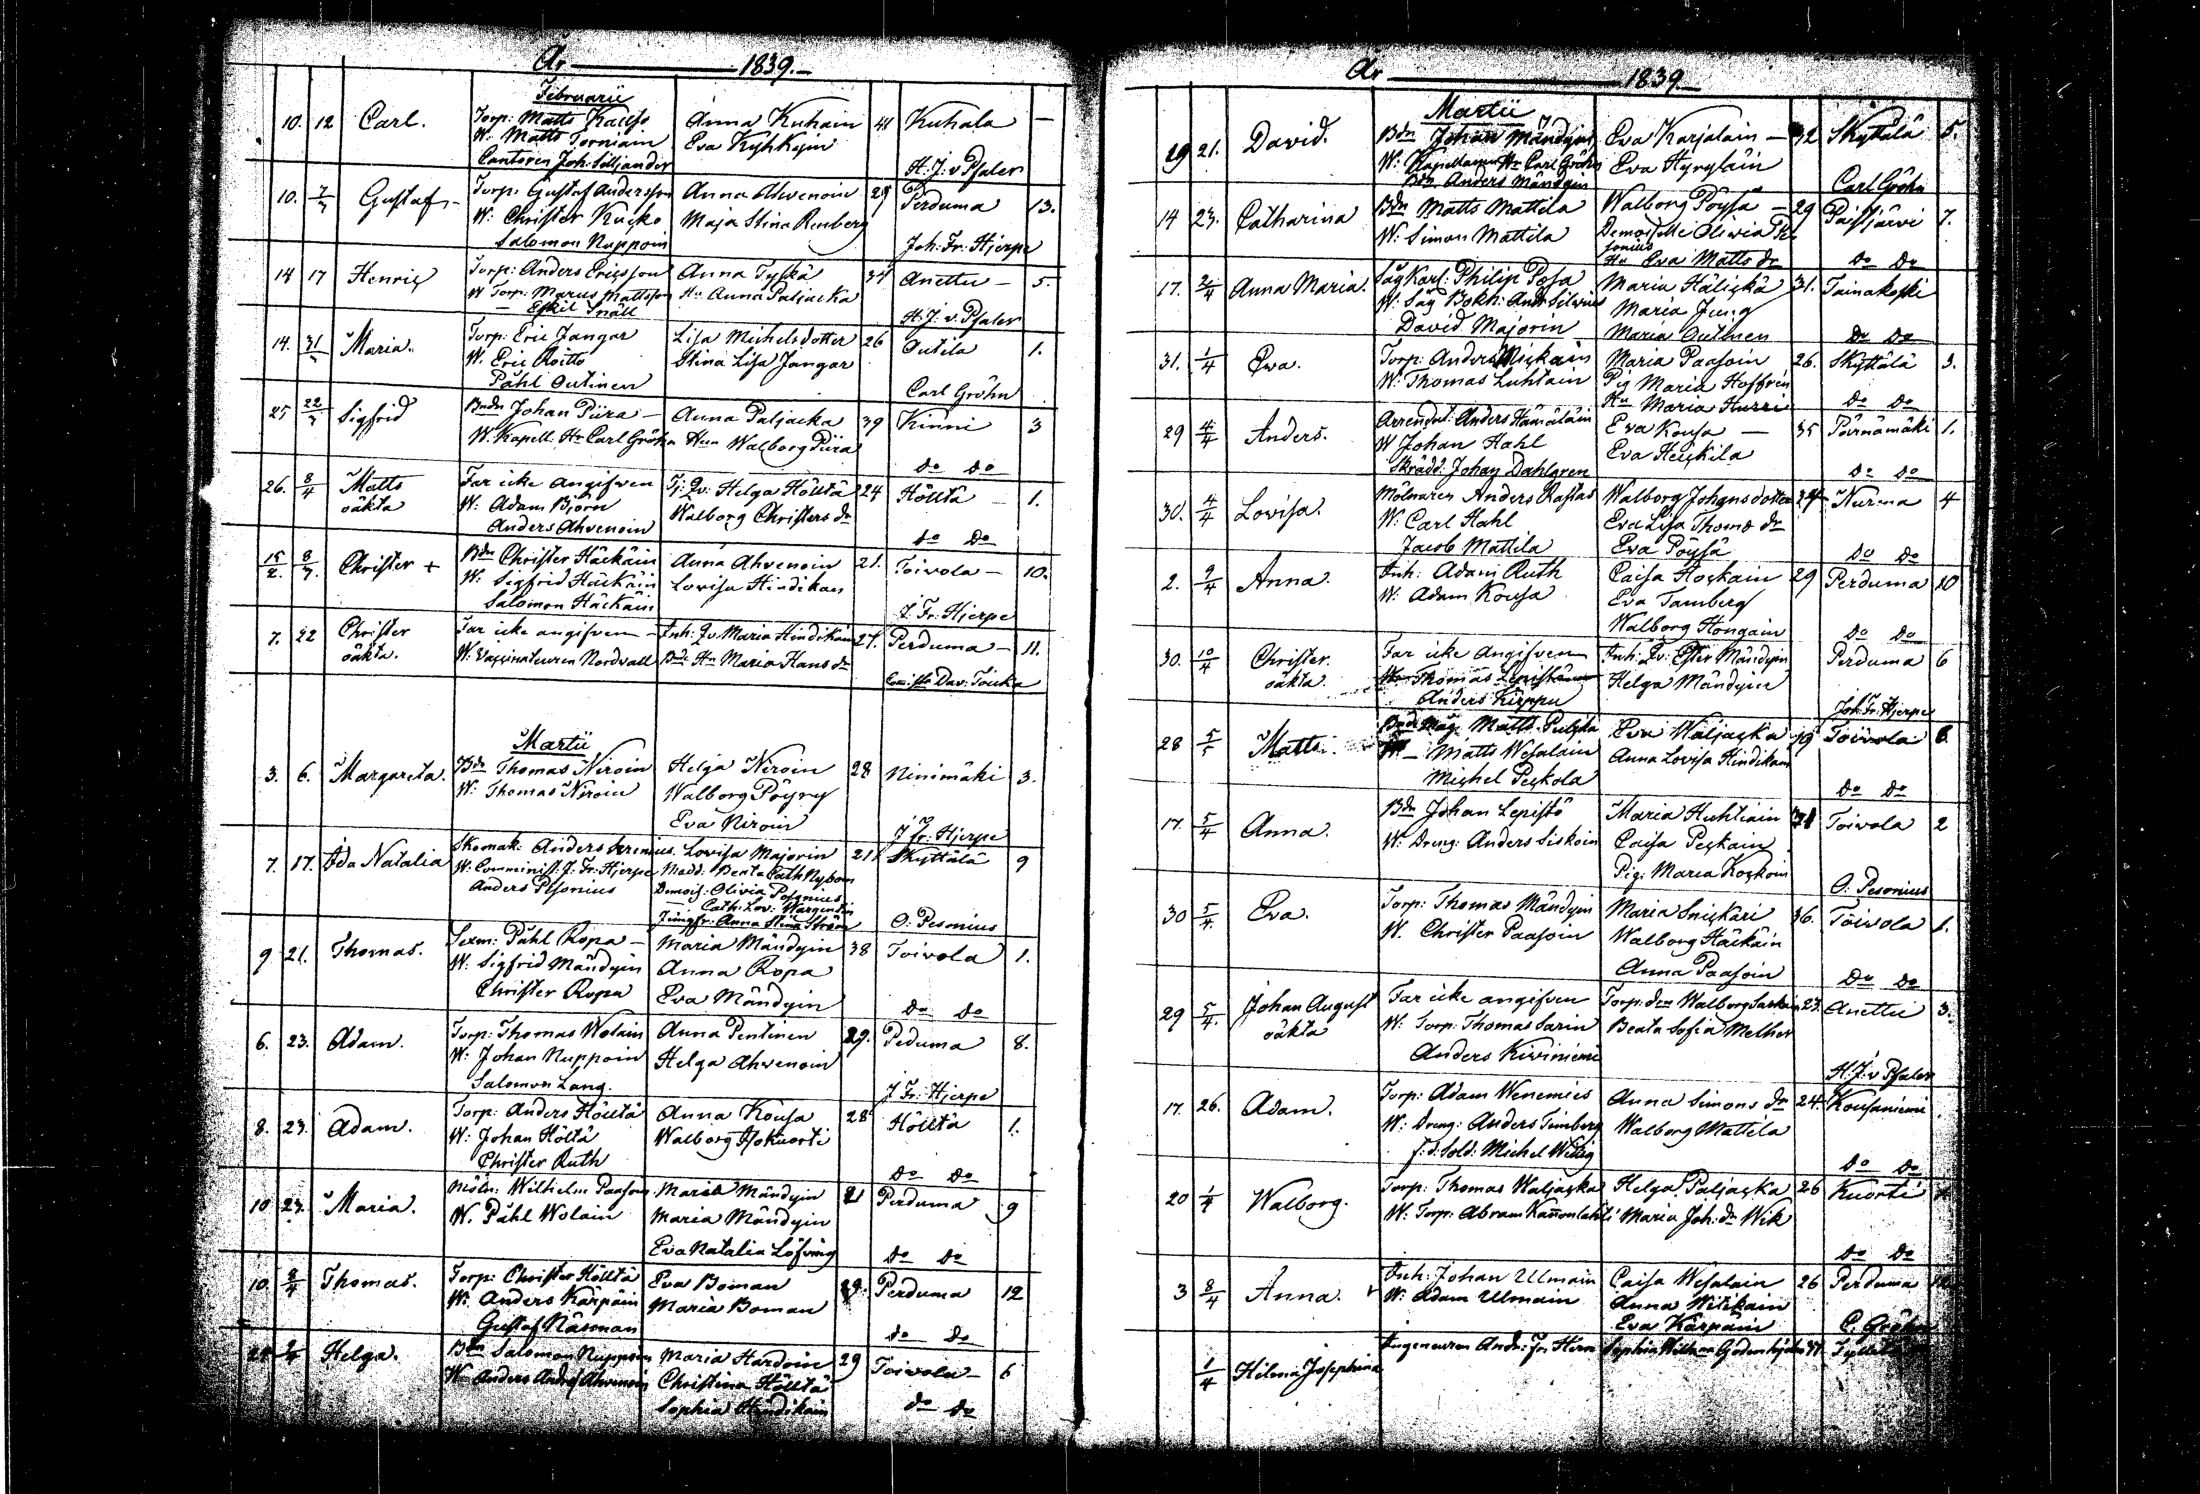 År 1839.
Februarii
10. 12 Carl. Torp: Matts Anna Kuhain 41 Kuhala —
W. Matts Torniain Eva Kykkyin
Cantoren Joh: Siljander H. J. v Pfaler
10. 7/3 Gustaf Torp: Gustaf Andersson Anna Ahvenoin 29 Perduma 13.
W: Christer Kucko Maja Stina Renberg
Salomon Nuppoin Joh: Fr: Hjerpe
14 17 Henric Torp: Anders Ericsson Anna Tyskä 34 Anettu — 5.
W Torp: Marcus Mattsson Hu Anna Paljacka
— Eskil Snäll H. J. v. Pfaler
14. 31/3 Maria. Torp: Eric Jangar Lisa Michelsdotter 26 Outila 1.
W. Eric Roitto Stina Lisa Jangar
Påhl Outinen Carl Gröhn
25 22/3 Sigfrid Bndn Johan Piira — Anna Paljacka 39 Kinni 3
W. Kapell. Hr Carl Gröhn Hun Walborg Piira
Do Do
26. 8/4 Matts Far icke angifven Tj: Qv: Helga Hölttä 24 Hölttä — 1.
oäkta W: Adam Björn Walborg Christers dr
Anders Ahvenoin Do Do
15/2. 8/3. Christer + Bdn Christer Häckäin Anna Ahvenoin 21. Toivola — 10.
W. Sigfrid Häckäin Lovisa Hindikan
Salomon Häckäin J. Fr: Hjerpe
7. 22 Christer Far icke angifven — Inh: Qv. Maria Hindikain 27. Perduma — 11.
oäkta. W: Vaccinateuren Nordvall Bnde Hu Maria Hans dr
Dav: Toicka
Martii
3. 6. Margareta. Bdn Thomas Niroin Helga Niroin 28 Ninimäki 3.
W: Thomas Niroin Walborg Pöyry
Eva Niroin J Fr: Hjerpe
7. 17. Ida Natalia Skomak: Anders Serenius. Lovisa Majorin 21 Skyttälä 9
W: Comminist. J. Fr: Hjerpe Madd: Beata Cath Nybom
Anders Pesonius Demois: Olivia Pesonius
— Cath: Lov: Wargentin
Jungfr: Anna Stina Ström O: Pesonius
9 21. Thomas. Sexm: Påhl Ropa — Maria Mändyin 38 Toivola 1.
W: Sigfrid Mändyin Anna Ropa
Christer Ropa Eva Mändyin Do Do
6. 23. Adam. Torp: Thomas Wolain Anna Pentinen 29. Peduma 8.
W: Johan Nuppoin Helga Ahvenoin
Salomon Lang. J Fr: Hjerpe
8. 23. Adam. Torp: Anders Hölttä Anna Kousa 28 Hölttä 1.
W: Johan Höltä Walborg Isokuorti
Christer Ruth Do Do
10 23. Maria. Möln: Wilhelm Paason Maria Mändyin 21 Perduma 9
W. Påhl Wolain Maria Mändyin
Eva Natalia Löfving Do Do
10. 2/4 Thomas. Torp: Christer Hölttä Eva Boman 29. Perduma 12
W: Anders Kärpäin Maria Boman
Gustaf Näsman Do Do
Helga. Bdn Salomon Nuppoin Maria Hardoin 29 Toivola — 6
W Anders Andrs Ahvenoin Christina Hölttä
Sophia Hindikain Do Do
År 1839
Martii
29 21. David. Bdn Johan Mändyin Eva Karjalain — 32 Skyttälä 5.
W: Kapellanen Hr Carl Gröhn Eva Hyrylain
Bdn Anders Mändyin Carl Gröhn
14 23. Catharina Bdn Matts Mattila Walborg Pöysä — 29 Paisjärvi 7.
W: Simon Mattila Demoiselle Olivia Pe
sonius
Hu Eva Matts dr Do Do
17. 2/4 Anna Maria. Såg Karl: Philip Posa Maria Häliskä 31. Tainakoski
W: Såg Bokh: Andr: Silvius Maria Jung
David Majorin Maria Outinen Do Do
31. 1/4 Eva. Torp: Anders Maria Paasoin 26. Skyttälä 3.
W: Thomas Luhtain Pig Maria Hoffren
Hu Maria Hurri Do Do
29 4/4 Anders. Arrendat: Anders Hämäläin Eva Kousa — 35 Pörnämäki 1.
W Johan Hahl Eva Heickila
Skrädd: Johan Dahlgren Do Do
30. 4/4 Lovisa. Mölnaren Anders Rastas Walborg Johansdotter 34 Nurma 4
W. Carl Hahl Eva Lisa Thoms dr
Jacob Mattila Eva Pöysä Do Do
2. 9/4 Anna. Inh: Adam Ruth Caisa Hockain 29 Perduma 10
W: Adam Kousa Eva Tamberg
Walborg Hongain Do Do
30. 10/4 Christer. Far icke angifven Inh: Qv: Ester Mändyin Perduma 6
oäkta W: Thomas Helga Mändyin
Anders Kirppu Joh: Fr: Hjerpe
28 5/5 Matts. Måg Matts Eva Waljacka 19 Toivola 6.
W — Matts Wesalain Anna Lovisa Hindikain
Michel Peckola Do Do
17. 5/4 Anna. Bdn Johan Lepistö Maria Huhtiain 31 Toivola 2
W: Dreng: Anders Siskoin Caisa Peckain
Pig: Maria Kockoin O: Pesonius
30 5/4. Eva. Torp: Thomas Mändyin Maria Snickari 36. Toivola 1.
W. Christer Paasoin Walborg Häckäin
Anna Paasoin Do Do
29 5/4. Johan August Far icke angifven Torp: dr Walborg 23. Anettu 3.
oäkta W: Torp: Thomas Sarin Beata Sofia Melher
Anders Kiviniemi H. J. v Pfaler
17. 26. Adam. Torp: Adam Wenemies Anna Simons dr 24. Kousaniemi
W: Dreng: Anders Timberg Walborg Mattila
f. d. Sold: Michel Do Do
20 1/4 Walborg. Torp: Thomas Waljacka Helga Paljacka 26 Kuorti
W: Torp: Abram Kannonlahti Maria Joh: dr Wik
Do Do
3 8/4 Anna. Inh: Johan Ulmain Caisa Wesalain 26 Perduma
W: Adam Ulmain Anna Witikain
Eva Kärpäin C. Gröhn
1/4 Hilma Josephina Ingeneuren Andr: Fr: Hern Sophia